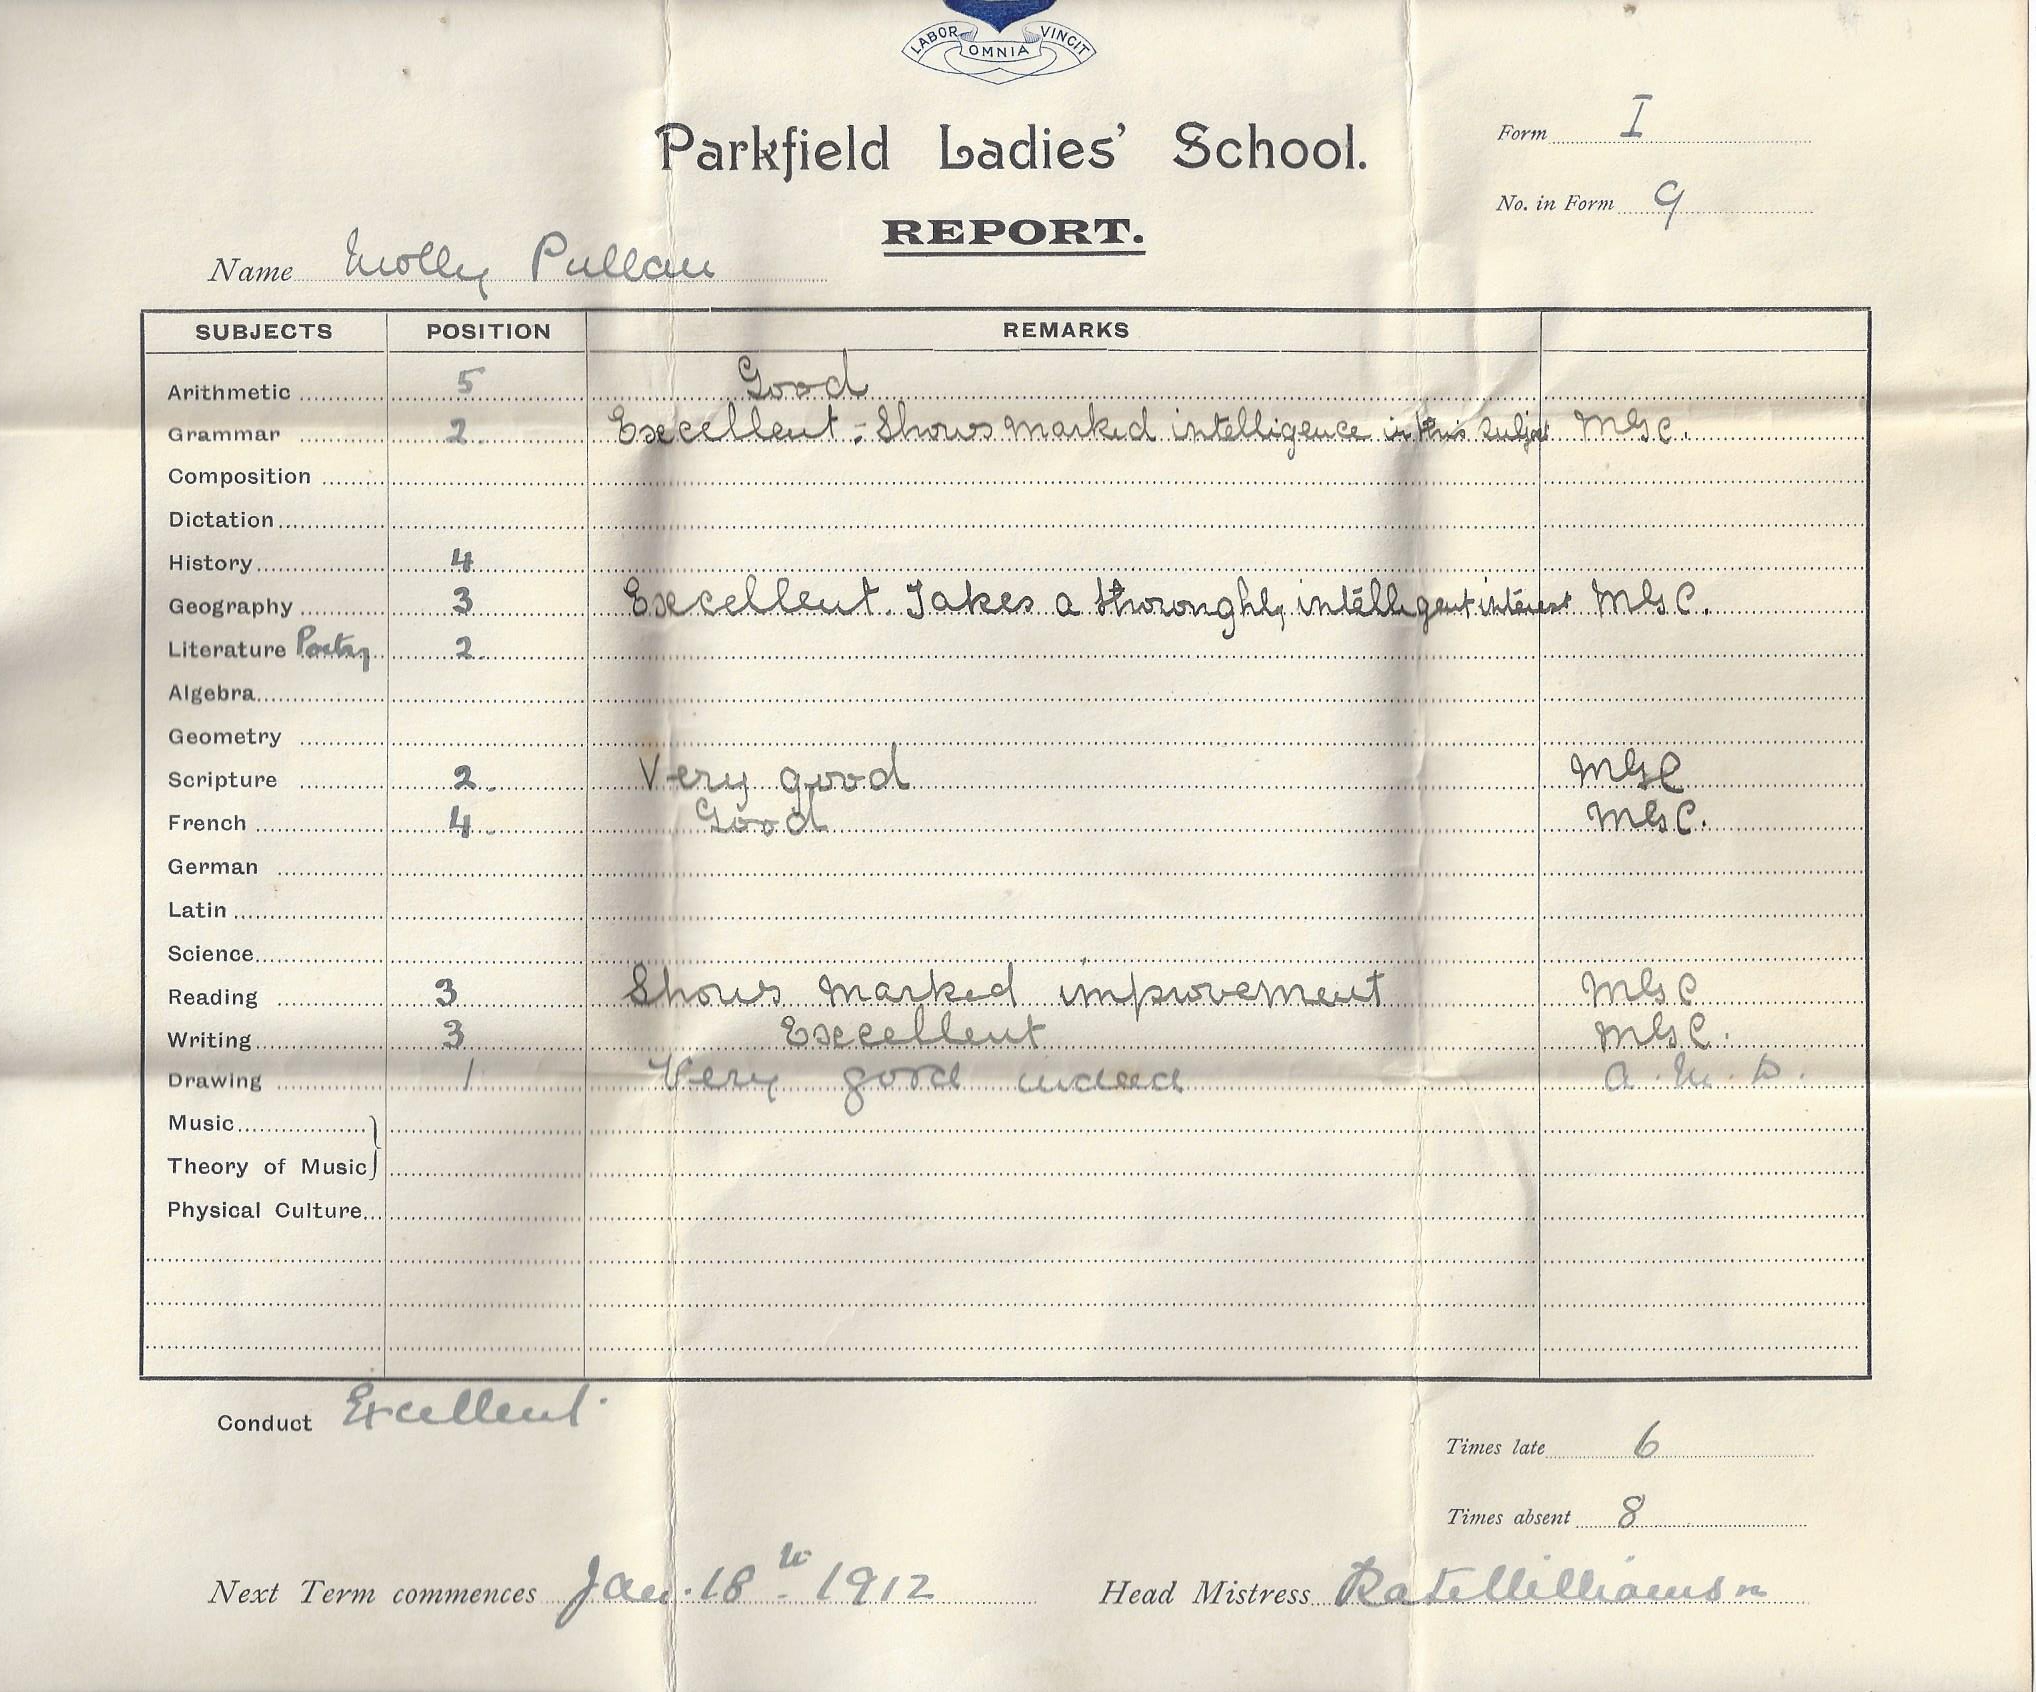 LABOR OMNIA VINCIT
Parkfield Ladies' School.
Form I
No. in Form 9
REPORT.
Name Molly Pullan
SUBJECTS POSITION REMARKS
Arithmetic 5 Good
Grammar 2. Excellent - Shows marked intelligence in this subject MGC.
Composition
Dictation
History 4
Geography 3 Excellent. Takes a thoroughly intelligent interest MGC.
Literature Poetry 2.
Algebra
Geometry
Scripture 2. Very good MGC
French 4. Good MGC.
German
Latin
Science
Reading 3 Shows marked improvement MGC
Writing 3 Excellent MGC.
Drawing 1 Very good indeed A.M.D.
Music
Theory of Music
Physical Culture
Conduct Excellent.
Times late 6
Times absent 8
Next Term commences Jan. 18th - 1912 Head Mistress Kate Williamson